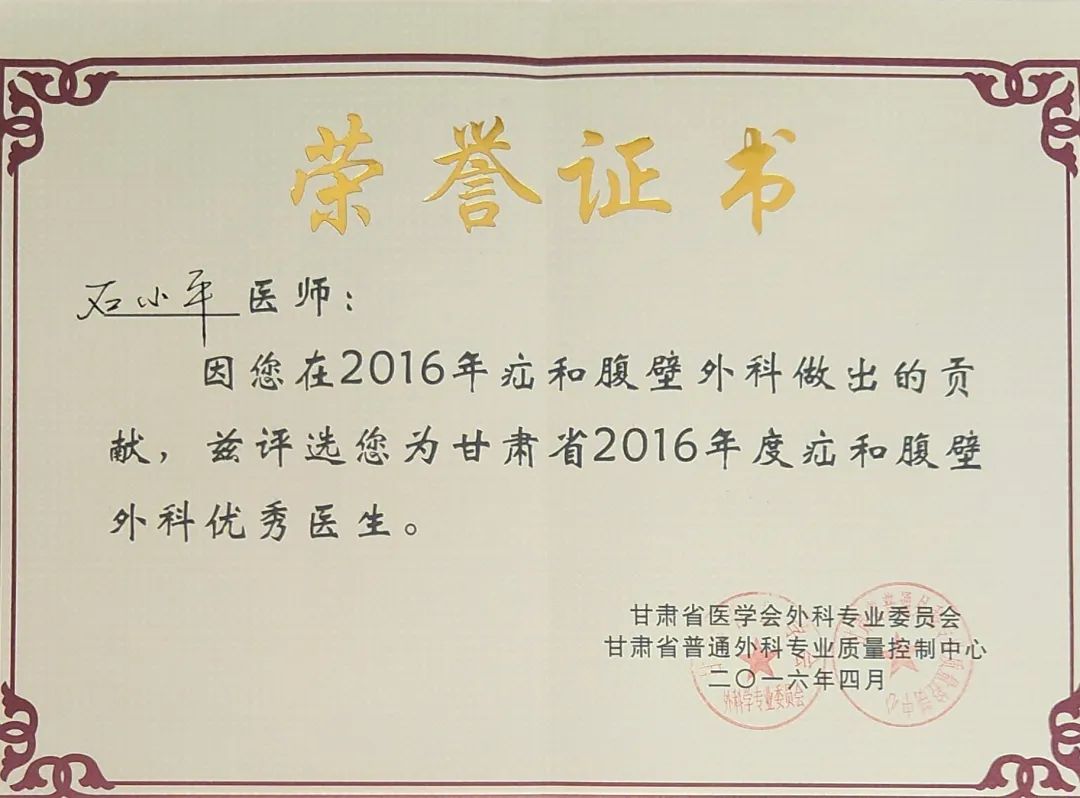 荣誉证书
石小平医师：
因您在2016年疝和腹壁外科做出的贡
献，兹评选您为甘肃省2016年度疝和腹壁
外科优秀医生。
甘肃省医学会外科专业委员会
甘肃省普通外科专业质量控制中心
二〇一六年四月
外科学专业委员会